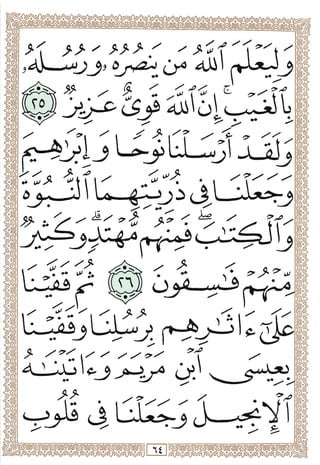 وَلِيَعْلَمَ ٱللَّهُ مَن يَنصُرُهُۥ وَرُسُلَهُۥ
بِٱلْغَيْبِ ۚ إِنَّ ٱللَّهَ قَوِىٌّ عَزِيزٌ ٢٥
وَلَقَدْ أَرْسَلْنَا نُوحًا وَإِبْرَٰهِيمَ
وَجَعَلْنَا فِى ذُرِّيَّتِهِمَا ٱلنُّبُوَّةَ
وَٱلْكِتَٰبَ ۖ فَمِنْهُم مُّهْتَدٍ ۖ وَكَثِيرٌ
مِّنْهُمْ فَٰسِقُونَ ٢٦ ثُمَّ قَفَّيْنَا
عَلَىٰٓ ءَاثَٰرِهِم بِرُسُلِنَا وَقَفَّيْنَا
بِعِيسَى ٱبْنِ مَرْيَمَ وَءَاتَيْنَٰهُ
ٱلْإِنجِيلَ وَجَعَلْنَا فِى قُلُوبِ
٦٤